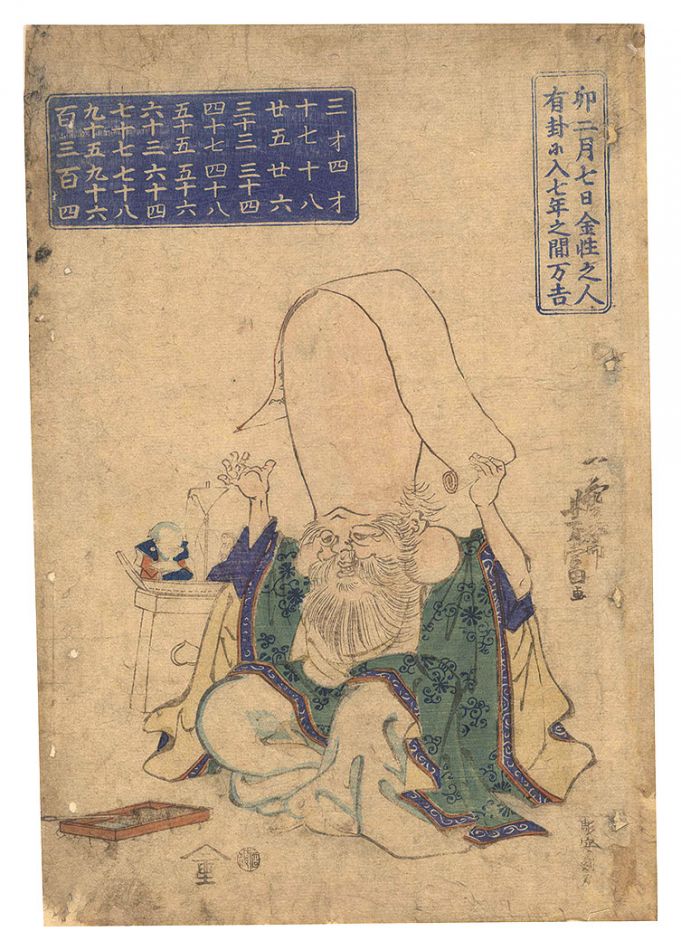 卯二月七日金性之人
有卦に入七年之間万吉
三才四才
十七十八
廿五廿六
三十三 三十四
四十七 四十八
五十五 五十六
六十三 六十四
七十七 七十八
九十五 九十六
百三 百四
芳富画